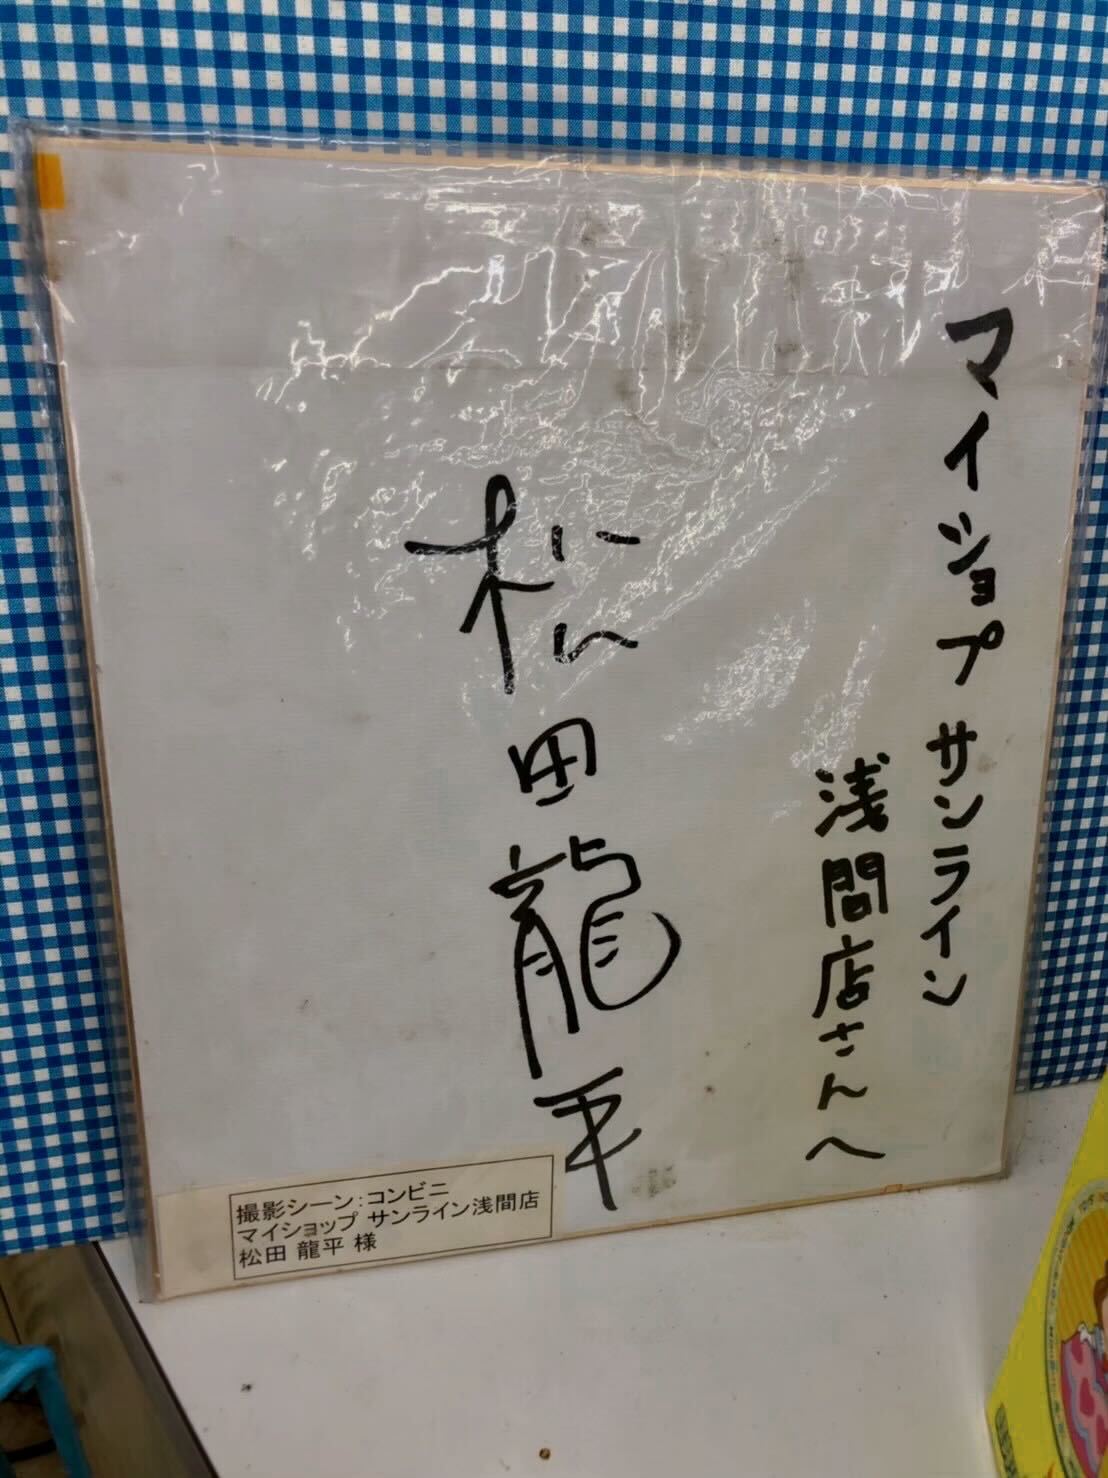 マイショプ サンライン
浅間店さんへ
松田龍平
撮影シーン：コンビニ
マイショップ サンライン浅間店
松田 龍平 様